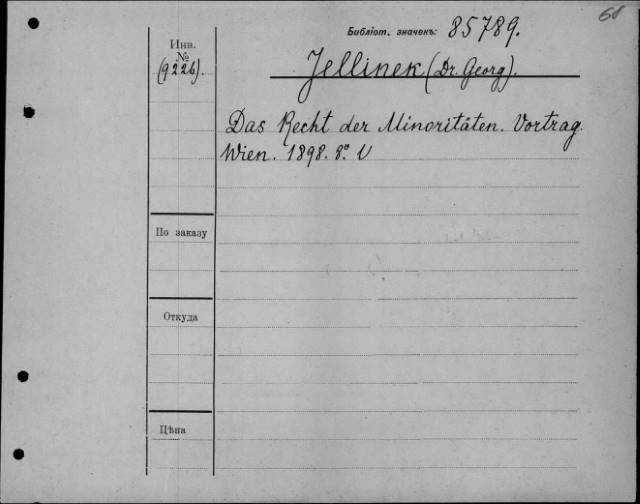 68
Библіот. значекъ: 85789.
Инв.
№
(9226).
Jellinek (Dr. Georg).
Das Recht der Minoritäten. Vortrag.
Wien. 1898. 8º. V
По заказу
Откуда
Цѣна